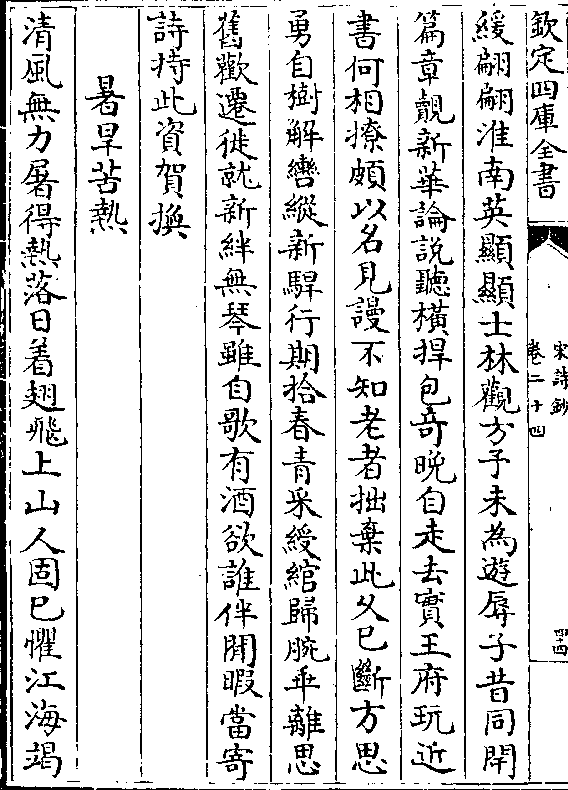 欽定四庫全書
宋詩鈔
卷二十四
四十四
緩翩翩淮南英顯顯士林觀方予未為遊辱子昔同閈
篇章靚新華論說聽橫捍包竒晚自走去實王府玩近
書何相撩頗以名見謾不知老者拙棄此久已斷方思
勇自樹解轡縱新駻行期拾春青采綬綰歸腕乖離思
舊歡遷徙就新絆無琴雖自歌有酒欲誰伴閒暇當寄
詩持此資賀換
暑旱苦熱
清風無力屠得熱落日着翅飛上山人固已懼江海竭